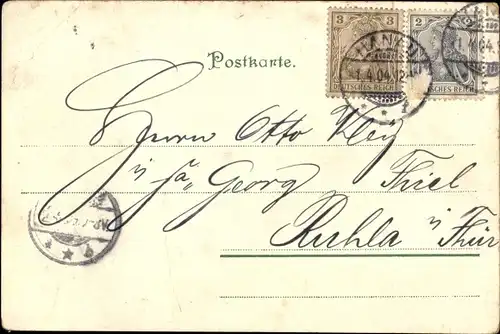 3 3 2 2
HANAU
Postkarte.
1.4.04.12
DEUTSCHES REICH
DEUTSCHES REICH
Herrn Otto
i/fa Georg Thiel
Ruhla i/Thür